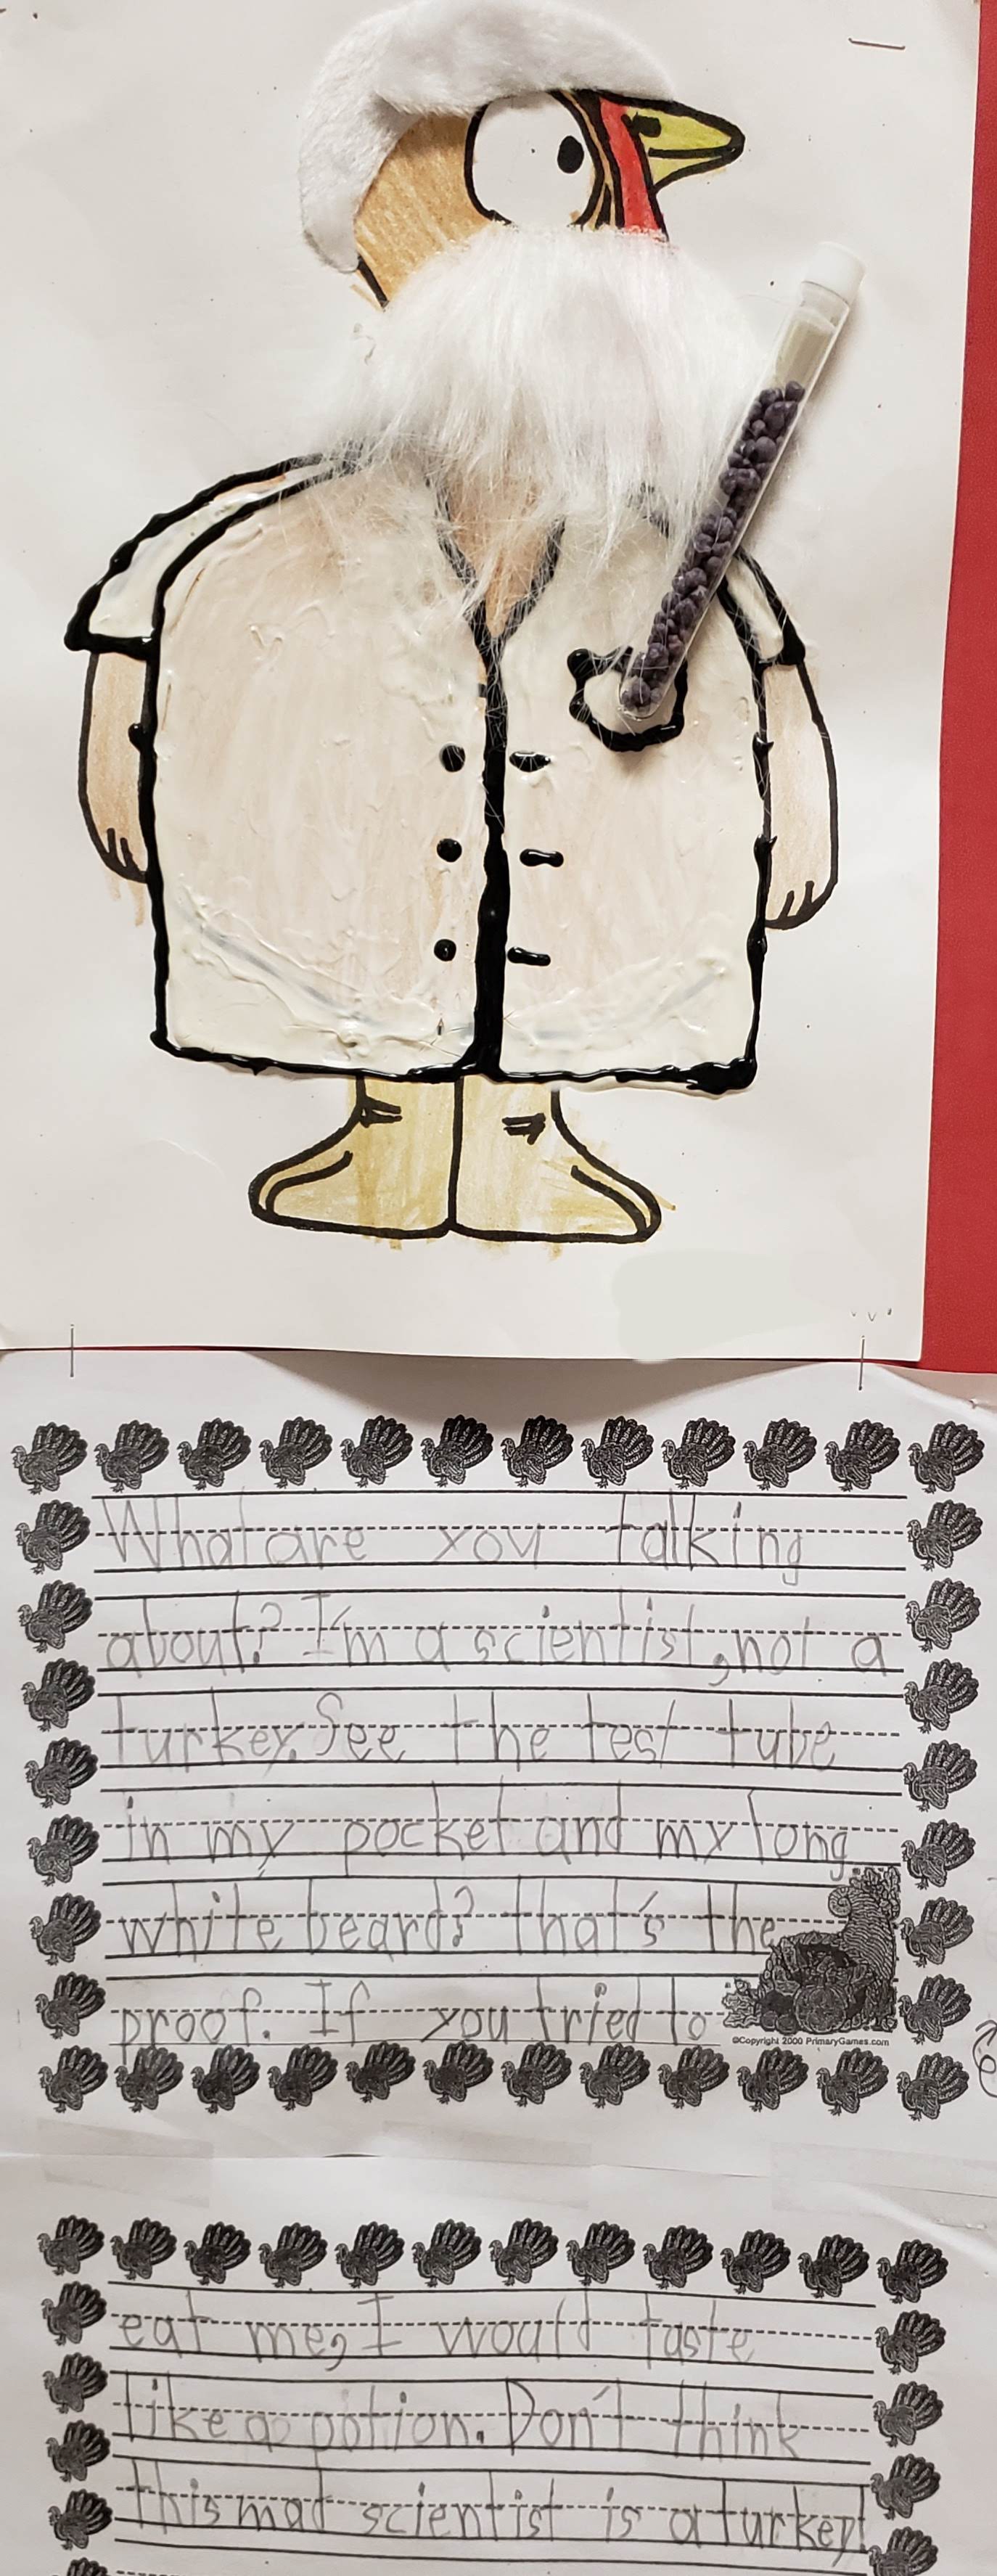 What are you talking
about? I'm a scientist, not a
turkey. See the test tube
in my pocket and my long
white beard? that's the
proof. If you tried to
©Copyright 2000 PrimaryGames.com
eat me, I would taste
like a potion. Don't think
this mad scientist is a turkey!